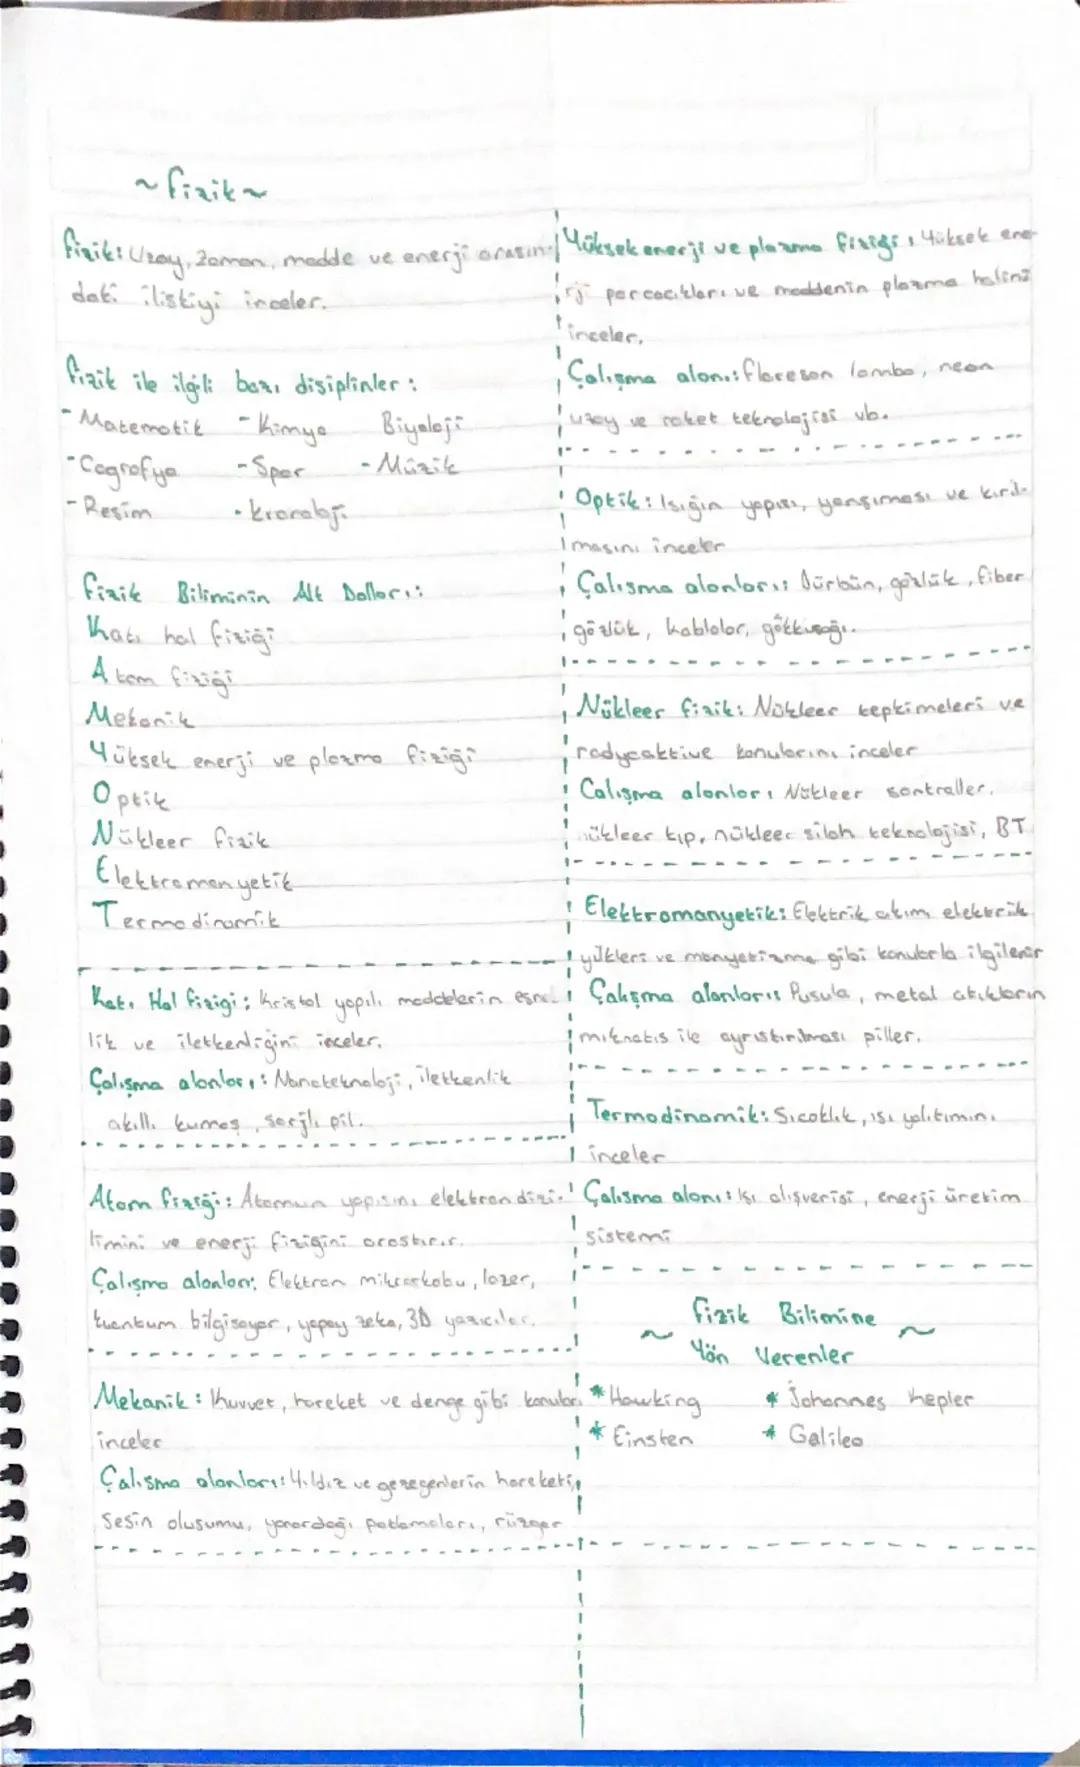 ~ fizik ~
fizik: Uzay, Zaman, madde ve enerji arasın-
daki ilişkiyi inceler.
fizik ile ilgili bazı disiplinler:
- Matematik - Kimya Biyoloji
- Cografya - Spor - Müzik
- Resim - kronoloji
fizik Biliminin Alt Dalları:
Katı hal fiziği
Atom fiziği
Mekanik
Yüksek enerji ve plazma fiziği
Optik
Nükleer fizik
Elektromanyetik
Termodinamik
Katı Hal fizigi: Kristal yapılı maddelerin esnek-
lik ve iletkenliğini inceler.
Çalışma alanları: Nanoteknoloji, iletkenlik
akıllı kumaş, şarjlı pil.
Atom fiziği: Atomun yapısını elektron dizi-
limini ve enerji fiziğini arastırır.
Çalışma alanları: Elektron mikroskobu, lazer,
kuantum bilgisayar, yapay zeka, 3D yazıcılar.
Mekanik: Kuvvet, hareket ve denge gibi konuları
inceler
Çalışma alanları: Yıldız ve gezegenlerin hareketi,
Sesin oluşumu, yanardağı patlamaları, rüzgar
Yüksek enerji ve plazma fiziği: Yüksek ene-
rji parcacıkları ve maddenin plazma halini
inceler.
Çalışma alanı: floresan lamba, neon
uzay ve roket teknolojisi vb.
Optik: Işığın yapısı, yansıması ve kırıl-
masını inceler
Çalısma alanları: Dürbün, gözlük, fiber
gözlük, kablolar, gökkuşağı.
Nükleer fizik: Nükleer tepkimeleri ve
radyoaktive konularını inceler
Calışma alanları Nükleer santraller.
nükleer tıp, nükleer silah teknolojisi, BT
Elektromanyetik: Elektrik akım elektrik
yükleri ve manyetizma gibi konularla ilgilenir
Çalışma alanları: Pusula, metal atıkların
mıknatıs ile ayrıstırılması piller.
Termodinamik: Sıcaklık, ısı yalıtımını
inceler
Çalısma alanı: Isı alışverişi, enerji üretim
sistemi
fizik Bilimine
~ Yön Verenler ~
* Hawking * Johannes Kepler
* Einsten * Galileo